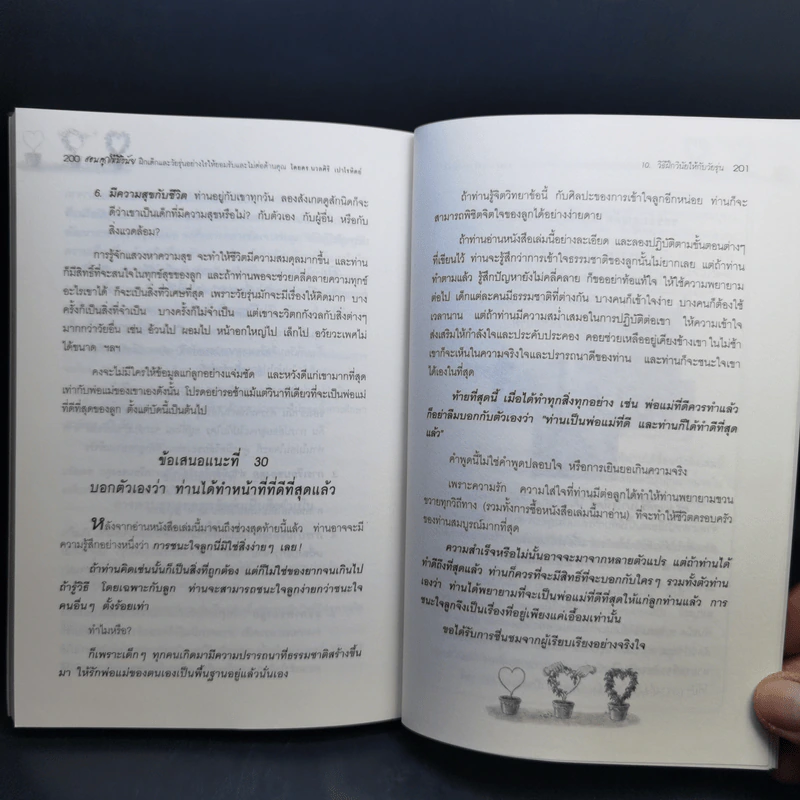 200 ฝึกเด็กและวัยรุ่นอย่างไรให้ยอมรับและไม่ต่อต้านคุณ โดยดร.นวลศิริ เปาโรหิตย์
6. มีความสุขกับชีวิต ท่านอยู่กับเขาทุกวัน ลองสังเกตดูสักนิดก็จะ
ดีว่าเขาเป็นเด็กที่มีความสุขหรือไม่? กับตัวเอง กับผู้อื่น หรือกับ
สิ่งแวดล้อม?
การรู้จักแสวงหาความสุข จะทำให้ชีวิตมีความสมดุลมากขึ้น และท่าน
ก็มีสิทธิ์ที่จะสนใจในทุกข์สุขของลูก และถ้าท่านพอจะช่วยคลี่คลายความทุกข์
อะไรเขาได้ ก็จะเป็นสิ่งที่วิเศษที่สุด เพราะวัยรุ่นมักจะมีเรื่องให้คิดมาก บาง
ครั้งก็เป็นสิ่งที่จำเป็น บางครั้งก็ไม่จำเป็น แต่เขาจะวิตกกังวลกับสิ่งต่างๆ
มากกว่าวัยอื่น เช่น อ้วนไป ผอมไป หน้าอกใหญ่ไป เล็กไป อวัยวะเพศไม่
ได้ขนาด ฯลฯ
คงจะไม่มีใครให้ข้อมูลแก่ลูกอย่างแจ่มชัด และหวังดีแก่เขามากที่สุด
เท่ากับพ่อแม่ของเขาเองดังนั้น โปรดอย่ารอช้าแม้แต่วินาทีเดียวที่จะเป็นพ่อแม่
ที่ดีที่สุดของลูก ตั้งแต่บัดนี้เป็นต้นไป
ข้อเสนอแนะที่ 30
บอกตัวเองว่า ท่านได้ทำหน้าที่ที่ดีที่สุดแล้ว
หลังจากอ่านหนังสือเล่มนี้มาจนถึงช่วงสุดท้ายนี้แล้ว ท่านอาจจะมี
ความรู้สึกอย่างหนึ่งว่า การชนะใจลูกนี่มิใช่สิ่งง่ายๆ เลย!
ถ้าท่านคิดเช่นนั้นก็เป็นสิ่งที่ถูกต้อง แต่ก็ไม่ใช่ของยากจนเกินไป
ถ้ารู้วิธี โดยเฉพาะกับลูก ท่านจะสามารถชนะใจลูกง่ายกว่าชนะใจ
คนอื่นๆ ตั้งร้อยเท่า
ทำไมหรือ?
ก็เพราะเด็กๆ ทุกคนเกิดมามีความปรารถนาที่ธรรมชาติสร้างขึ้น
มา ให้รักพ่อแม่ของตนเองเป็นพื้นฐานอยู่แล้วนั่นเอง
10. วิธีฝึกวินัยให้กับวัยรุ่น 201
ถ้าท่านรู้จิตวิทยาข้อนี้ กับศิลปะของการเข้าใจลูกอีกหน่อย ท่านก็จะ
สามารถพิชิตจิตใจของลูกได้อย่างง่ายดาย
ถ้าท่านอ่านหนังสือเล่มนี้อย่างละเอียด และลองปฏิบัติตามขั้นตอนต่างๆ
ที่เขียนไว้ ท่านจะรู้สึกว่าการเข้าใจธรรมชาติของลูกนั้นไม่ยากเลย แต่ถ้าท่าน
ทำตามแล้ว รู้สึกปัญหายังไม่คลี่คลาย ก็ขออย่าท้อแท้ใจ ให้ใช้ความพยายาม
ต่อไป เด็กแต่ละคนมีธรรมชาติที่ต่างกัน บางคนก็เข้าใจง่าย บางคนก็ต้องใช้
เวลานาน แต่ถ้าท่านมีความสม่ำเสมอในการปฏิบัติต่อเขา ให้ความเข้าใจ
ส่งเสริมให้กำลังใจและประคับประคอง คอยช่วยเหลืออยู่เคียงข้างเขา ในไม่ช้า
เขาก็จะเห็นในความจริงใจและปรารถนาดีของท่าน และท่านก็จะชนะใจเขา
ได้เองในที่สุด
ท้ายที่สุดนี้ เมื่อได้ทำทุกสิ่งทุกอย่าง เช่น พ่อแม่ที่ดีควรทำแล้ว
ก็อย่าลืมบอกกับตัวเองว่า "ท่านเป็นพ่อแม่ที่ดี และท่านก็ได้ทำดีที่สุด
แล้ว"
คำพูดนี้ไม่ใช่คำพูดปลอบใจ หรือการเยินยอเกินความจริง
เพราะความรัก ความใส่ใจที่ท่านมีต่อลูกได้ทำให้ท่านพยายามขวน
ขวายทุกวิถีทาง (รวมทั้งการซื้อหนังสือเล่มนี้มาอ่าน) ที่จะทำให้ชีวิตครอบครัว
ของท่านสมบูรณ์มากที่สุด
ความสำเร็จหรือไม่นั้นอาจจะมาจากหลายตัวแปร แต่ถ้าท่านได้
ทำดีถึงที่สุดแล้ว ท่านก็ควรที่จะมีสิทธิที่จะบอกกับใครๆ รวมทั้งตัวท่าน
เองว่า ท่านได้พยายามที่จะเป็นพ่อแม่ที่ดีที่สุดให้แก่ลูกท่านแล้ว การ
ชนะใจลูกจึงเป็นเรื่องที่อยู่เพียงแค่เอื้อมเท่านั้น
ขอได้รับการชื่นชมจากผู้เรียบเรียงอย่างจริงใจ